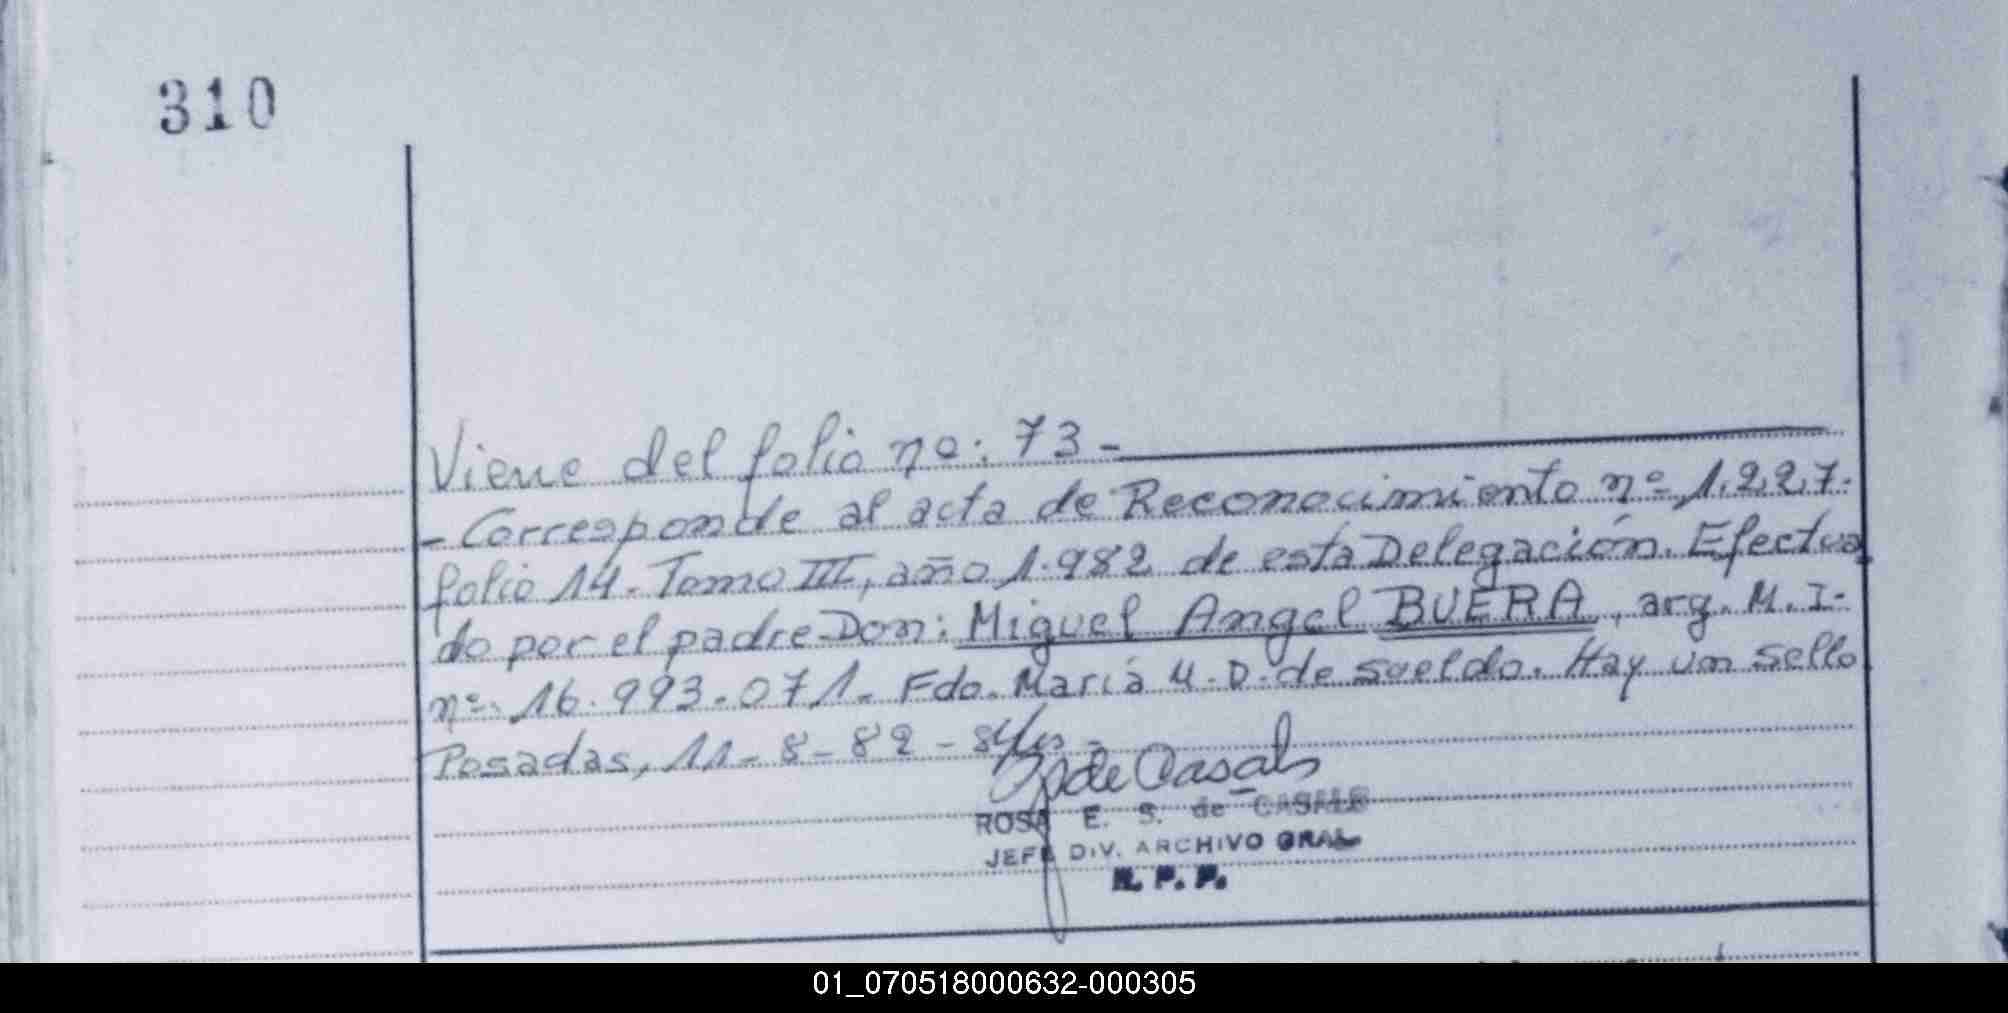 310
Viene del folio nº: 73 -
- Corresponde al acta de Reconocimiento nº 1.227.
folio 14. Tomo III, año 1.982 de esta Delegación. Efectua
do por el padre Don: Miguel Angel BUERA, arg. M. I.
nº. 16.993.071. Fdo. Maria M. D. de sueldo. Hay un sello
Posadas, 11-8-82 -
de Casals
ROSA E. S. de CASALS
JEFE DIV. ARCHIVO GRAL
R. P. P.
01_070518000632-000305